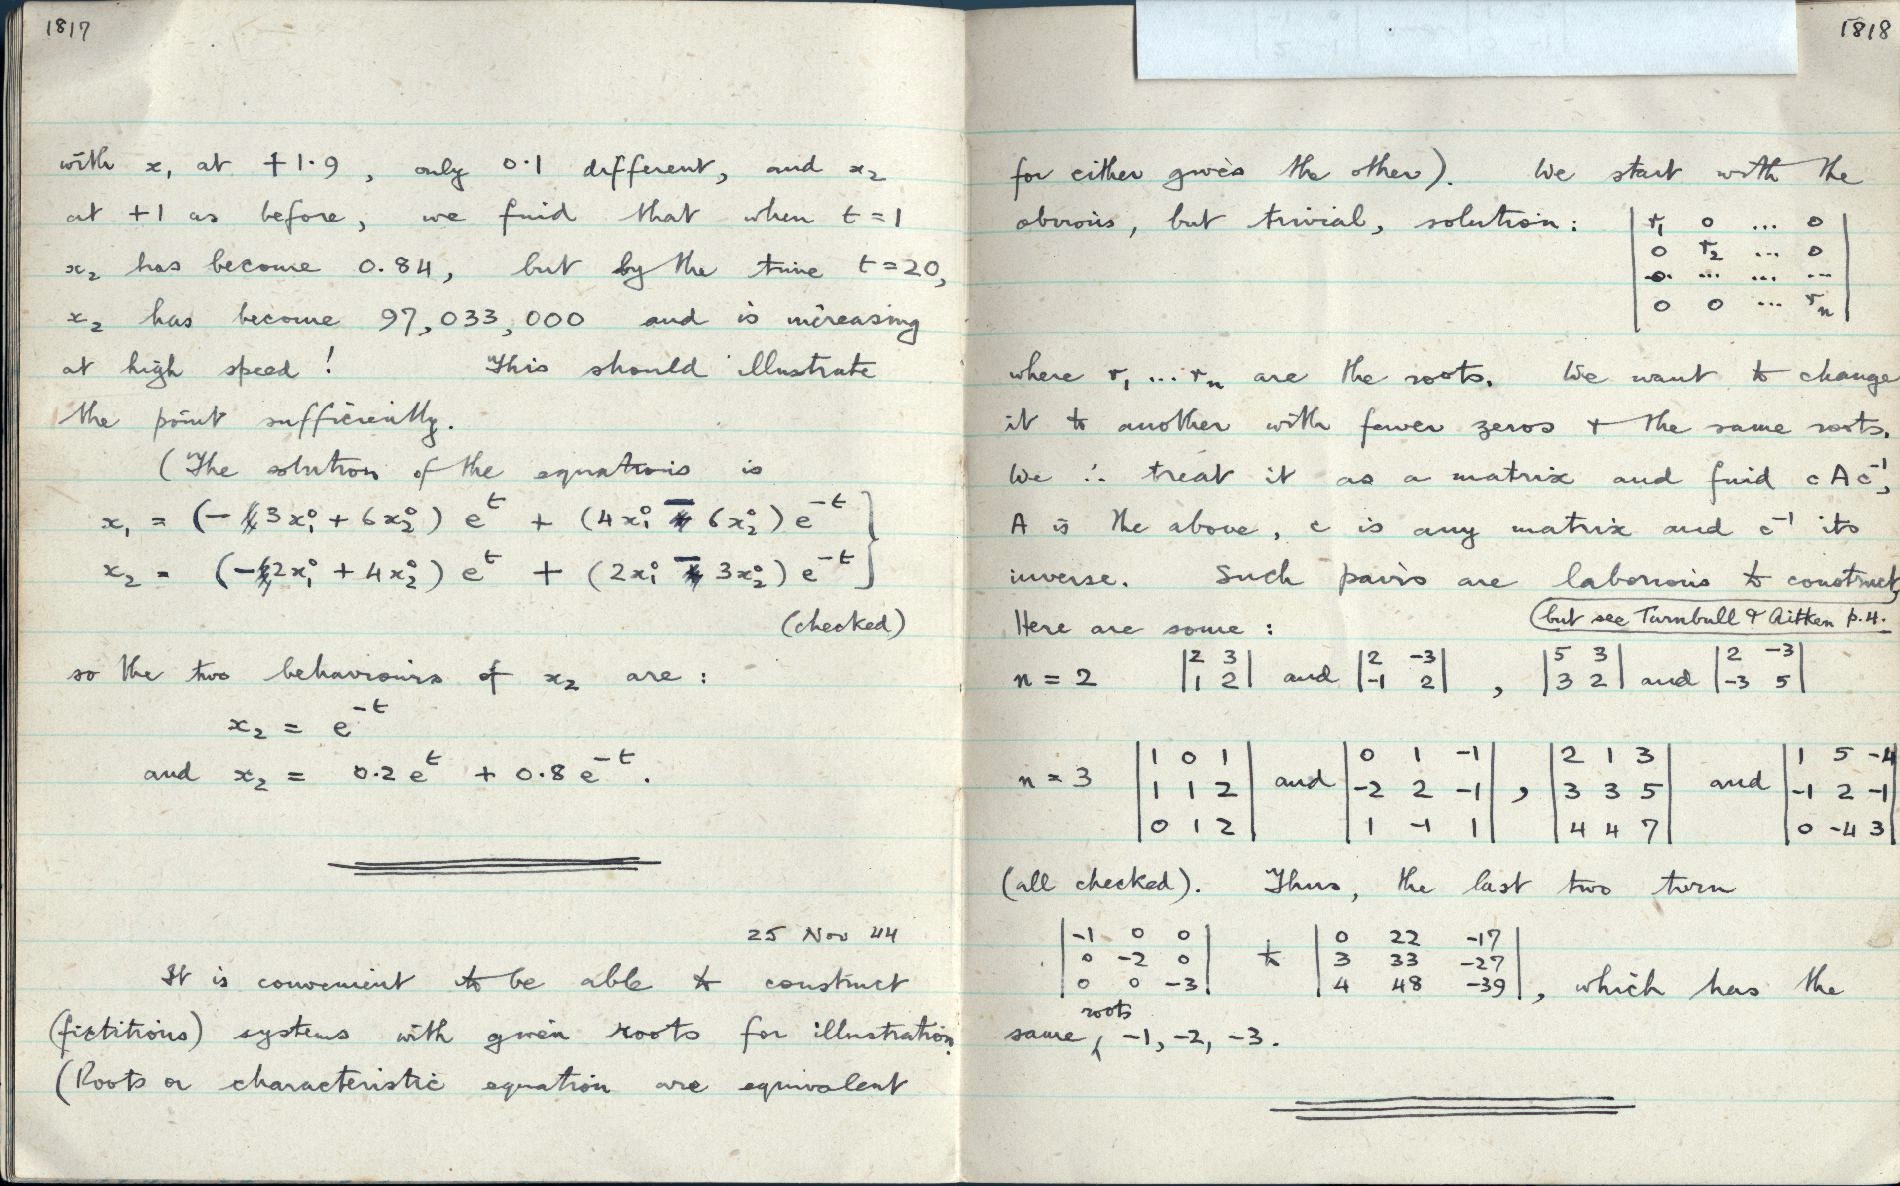 1817
with x₁ at +1.9, only 0.1 different, and x₂
at +1 as before, we find that when t=1
x₂ has become 0.84, but by the time t=20,
x₂ has become 97,033,000 and is increasing
at high speed! This should illustrate
the point sufficiently.
(The solution of the equations is
x₁ = (-3x₁° + 6x₂°) eᵗ + (4x₁° - 6x₂°) e⁻ᵗ }
x₂ = (-2x₁° + 4x₂°) eᵗ + (2x₁° - 3x₂°) e⁻ᵗ }
(checked)
so the two behaviours of x₂ are:
x₂ = e⁻ᵗ
and x₂ = 0.2eᵗ + 0.8e⁻ᵗ.
25 Nov 44
It is convenient to be able to construct
(fictitious) systems with given roots for illustration.
(Roots or characteristic equation are equivalent
1818
for either gives the other). We start with the
obvious, but trivial, solution: | r₁ 0 ... 0 |
| 0 r₂ ... 0 |
| 0 ... ... ... |
| 0 0 ... rₙ |
where r₁ ... rₙ are the roots. We want to change
it to another with fewer zeros + the same roots.
We ∴ treat it as a matrix and find cAc⁻¹,
A is the above, c is any matrix and c⁻¹ its
inverse. Such pairs are laborious to construct,
(but see Turnbull & Aitken p.4.
Here are some:
n = 2 |2 3| and |2 -3|, |5 3| and |2 -3|
|1 2| |-1 2| |3 2| |-3 5|
|1 0 1| |0 1 -1| |2 1 3| |1 5 -4|
n = 3 |1 1 2| and |-2 2 -1|, |3 3 5| and |-1 2 -1|
|0 1 2| |1 -1 1| |4 4 7| |0 -4 3|
(all checked). Thus, the last two turn
|-1 0 0| |0 22 -17|
|0 -2 0| to |3 33 -27|
|0 0 -3| |4 48 -39|, which has the
roots
same, -1, -2, -3.